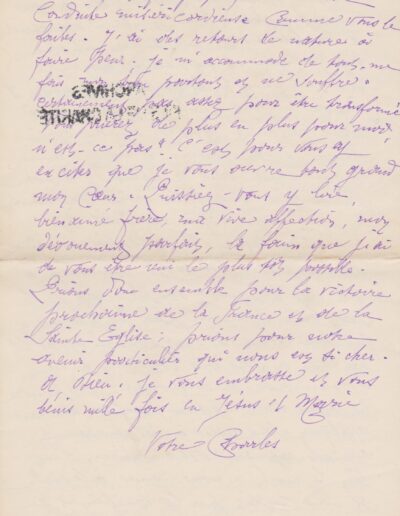 Conduite miséricordieuse comme vous le
faites. J'ai des retours de nature à
faire peur. Je m'accommode de tout, me
fais partout et ne souffre
certainement pas assez pour être transformé
Vous prierez de plus en plus pour moi,
n'est-ce pas ? C'est pour vous y
exciter que je vous ouvre tout grand
mon cœur. Puissiez-vous y lire,
bien aimé frère, ma vive affection, mon
dévouement parfait, la faim que j'ai
de vous être uni le plus tôt possible.
Prions donc ensemble pour la victoire
prochaine de la France et de la
Sainte Eglise ; prions pour notre
avenir particulier qui nous est si cher.
A Dieu. Je vous embrasse et vous
bénis mille fois en Jésus et Marie
Votre Charles
ARCHIVES
CHARITÉ